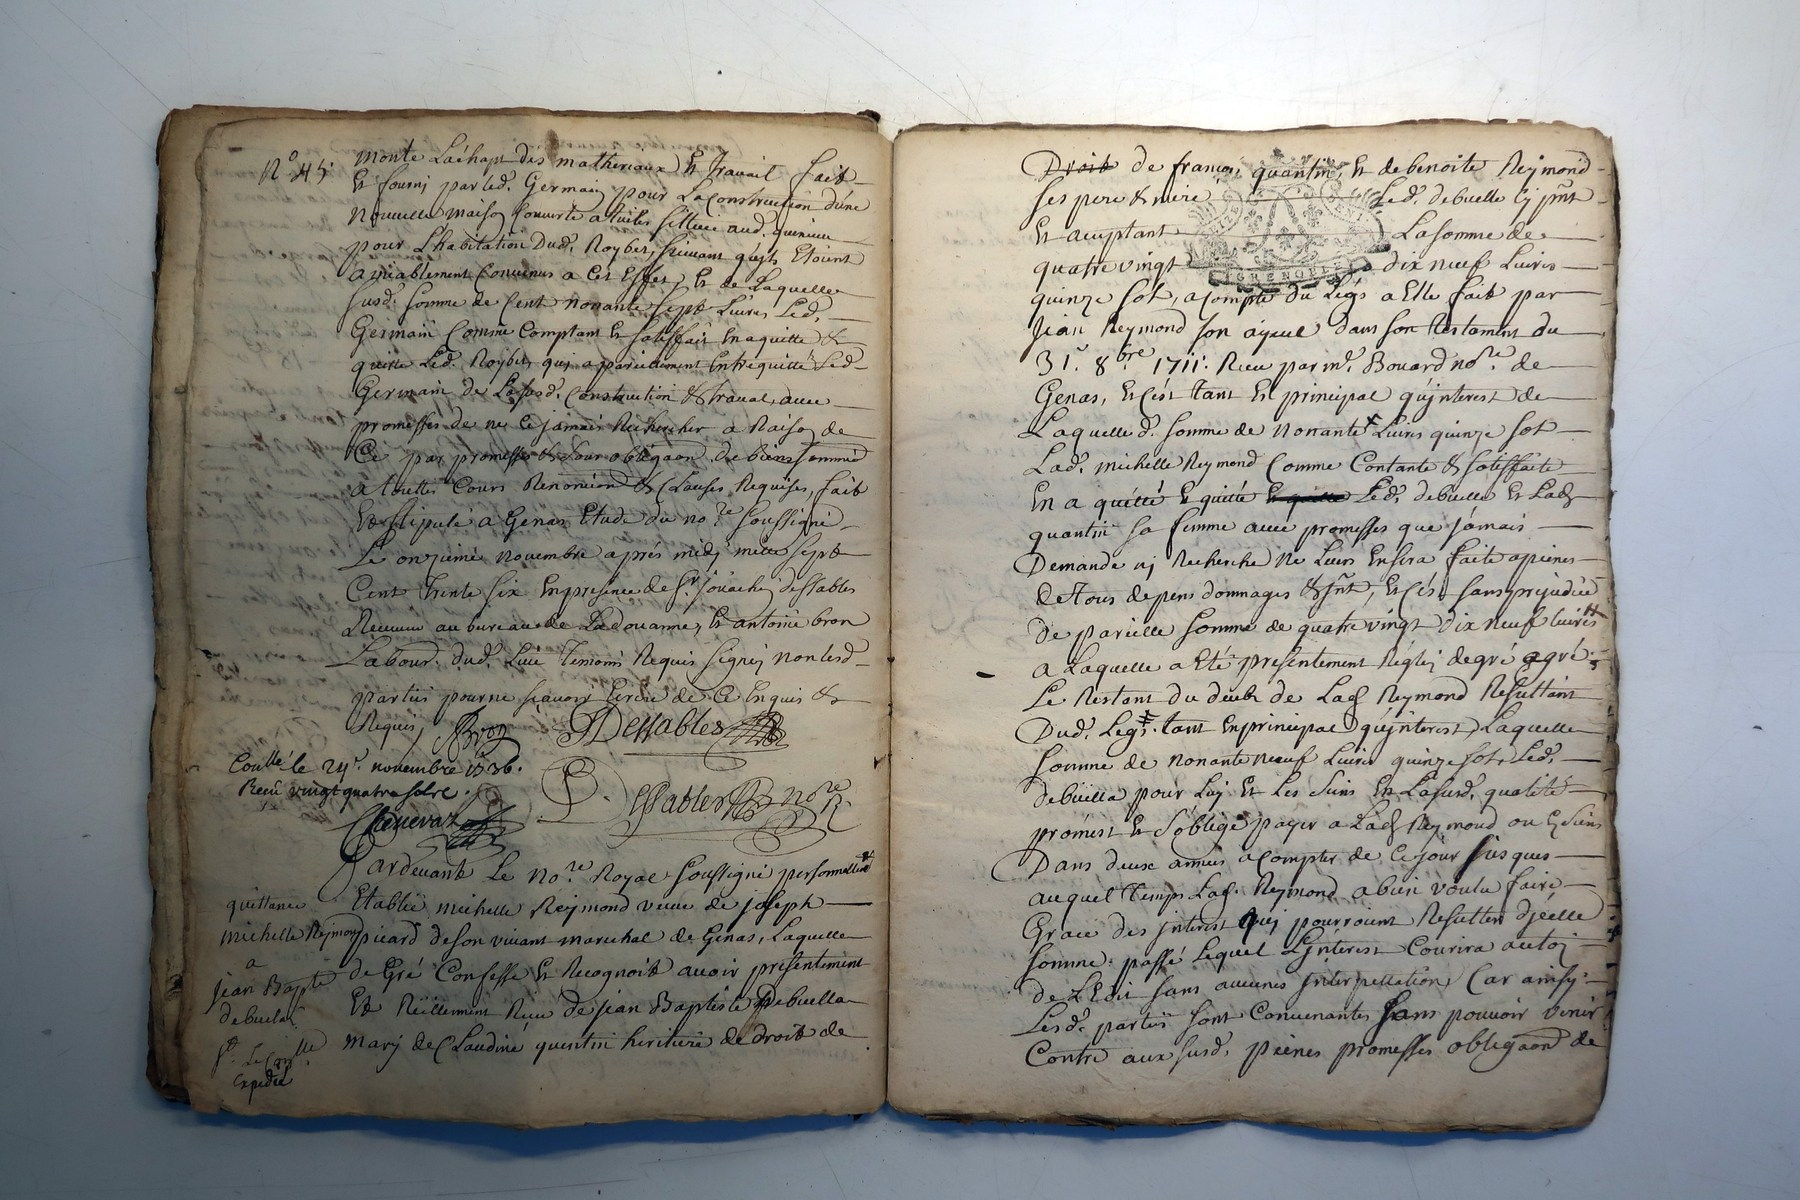 N.o 45.
monte Lachapt des matheriaux Et travail fait
Et fourni par led. Germain pour La Construction d'une
Nouvelle maison Couverte a tuiles sittuée aud.
pour L'habitation Dud. Roybet, suivant qu'ils Etoient
amiablement Convenus a Cet Effet, Et de Laquelle
susd. somme de Cent nonante sept Livres Led.
Germain Comme Comptant Et satisffait En a quitté &
quitte Led. Roybet qui a pareillement Entrequitté Led.
Germain de La susd. Construction & travail, avec
promesses de ne Ce jamais Rechercher a Raison de
Ce par promesses & sous obligaon de biens
a touttes Cours Renonciaon & Clauses Requises, fait
Et stipulé a Genas Etude du no.re soussigné
Le onzieme novembre aprés midy mille sept
Cent trente six En presence de S.r Joachin dessables
Receveur au bureau de La douanne, Et antoine bron
Labour. dud. Lieu temoins Requis signés non lesd.
parties pour ne sçavoir Ecrire de Ce Enquis &
Requis, Bron JDessables
Conllé le 24.e novembre 1736.
Receu vingt quatre sols.
Dessables no.re R.
Chenevaz
Pardevant Le No.re Royal soussigné personnellem.t
quittance
Etablie michelle Reymond veuve de joseph
michelle Reymond
picard de son vivant marechal de Genas, Laquelle
a
de Gré Confesse Et Recognoit avoir presentement
jean Bapte
Et Réellement Reçu de jean Baptiste Debuella
debuella
mary de Claudine quantin heritiere de droit de
expediée
Droit de françois quantin, Et de benoite Reymond
ses pere & mere Led. debuelle
GRENOBLE
Et acceptant La somme de
quatre vingt dix neuf Livres
quinze sol, a Compte du Legs a Elle fait par
Jean Reymond son ayeul dans son testament du
31.e 8.bre 1711. Receu par m.e Bouard no.re de
Genas, Et C'est tant En principal qu'interest de
Laquelle d. somme de nonante Livres quinze sol
Lad. michelle Reymond Comme Contante & satisffaite
En a quitté Et quitte Led. debuella Et Lad.
quantin sa femme avec promesses que jamais
Demande ni Recherche ne Leurs En sera faite a peines
De tous depens dommages & Et C'est sans prejudice
De pareille somme de quatre vingt dix neuf livres
a Laquelle a Eté presentement Réglé de gré a gré
Le Restant du deub de Lad. Reymond Resultant
Dud. Legs tant En principal qu'interest, Laquelle
somme de nonante neuf Livres quinze sol, Led.
debuella pour Luy Et Les siens En La susd. qualité
promest Et s'oblige payer a Lad. Reymond ou Es siens
Dans deux années a Compter de Ce jour jusques
auquel temps Lad. Reymond a bien voulu faire
Grace des interest quy pourroient Resulter d'icelle
somme: passé Lequel L'interest Courira au toy
de L'Edit sans aucunes interpellation, Car ainsy
Lesd. parties sont Convenantes sans pouvoir venir
Contre aux susd. peines promesses obligaon de